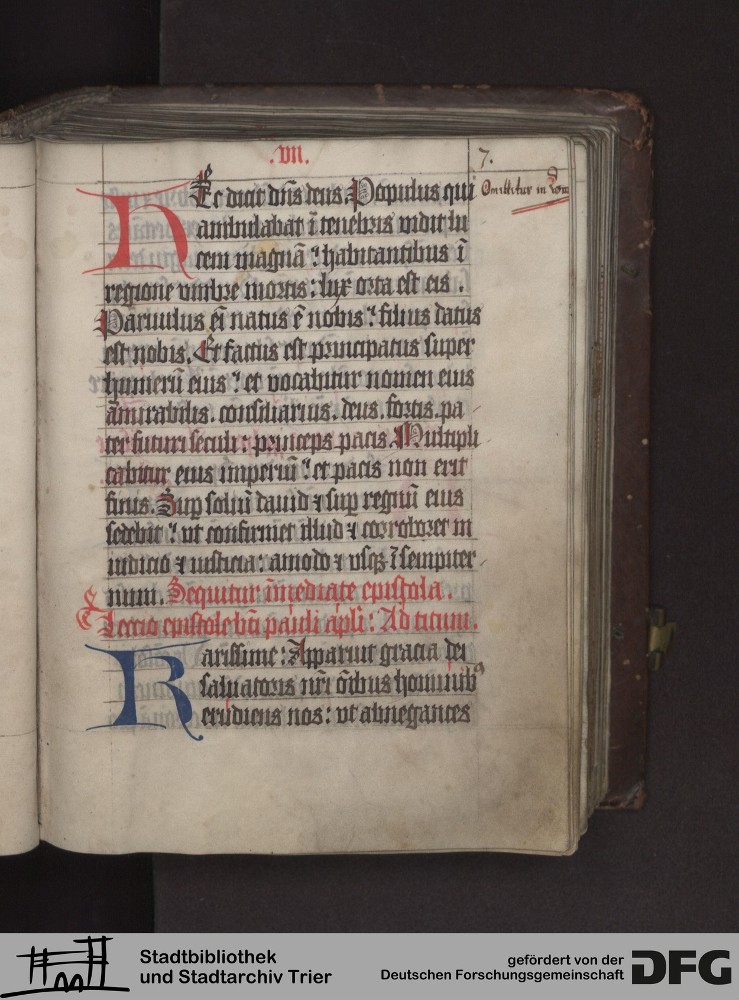 .vii.
7.
Hec dicit dn̄s deus. Populus qui
Omittitur in dom
ambulabat ī tenebris vidit lu
cem magnā ⁊ habitantibus ī
regione vmbre mortis: lux orta est eis.
Paruulus eī natus ē nobis ⁊ filius datus
est nobis. Et factus est principatus super
humerū eius ⁊ et vocabitur nomen eius
āmirabilis. consiliarius. deus. fortis. pa
ter futuri seculi: princeps pacis. Multipli
cabitur eius imperiū ⁊ et pacis non erit
finis. Suꝑ soliū dauid ⁊ suꝑ regnū eius
sedebit ⁊ vt confirmet illud ⁊ corroboret in
iudicio ⁊ iusticia: amodo ⁊ vsqꝫ ī sempiter
num. Sequitur īmediate epistola.
Lectio epistole bt̄i pauli apl̄i: Ad titum.
Karissime: Apparuit gracia dei
saluatoris nr̄i oībus hominibꝰ
erudiens nos: vt abnegantes
Stadtbibliothek
und Stadtarchiv Trier
gefördert von der
Deutschen Forschungsgemeinschaft
DFG